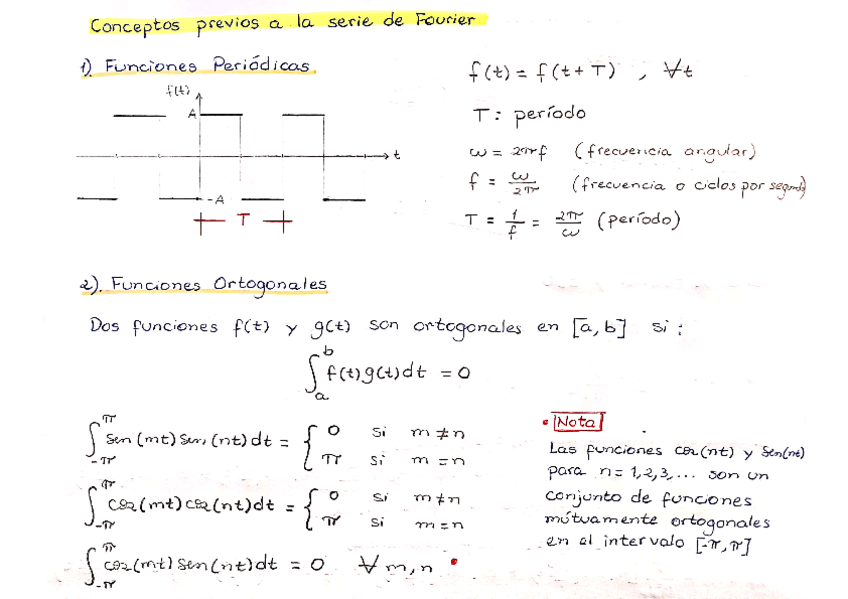 Conceptos previos a la serie de Fourier
1). Funciones Periódicas.
f(t)
A
t
-A
T
f(t) = f(t+T) , ∀t
T: período
ω = 2πf (frecuencia angular)
f = ω/2π (frecuencia o ciclos por segundo)
T = 1/f = 2π/ω (período)
2). Funciones Ortogonales
Dos funciones f(t) y g(t) son ortogonales en [a,b] si:
∫_a^b f(t)g(t)dt = 0
∫_{-π}^{π} sen(mt) sen(nt)dt = { 0 si m ≠ n
π si m = n
∫_{-π}^{π} cos(mt)cos(nt)dt = { 0 si m ≠ n
π si m = n
∫_{-π}^{π} cos(mt)sen(nt)dt = 0 ∀ m,n
• Nota
Las funciones cos(nt) y sen(nt)
para n = 1,2,3,... son un
conjunto de funciones
mútuamente ortogonales
en el intervalo [-π,π]